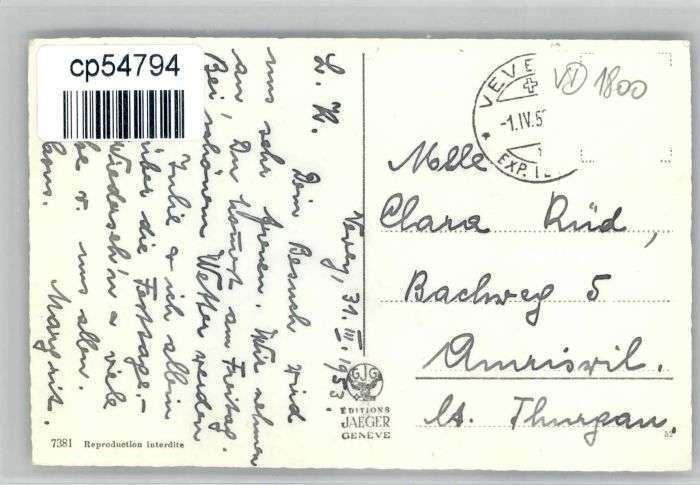 cp54794
VD 1800
VEVEY
-1.IV.53
EXP. L
Vevey, 31. III. 1953.
L. K.
Dein Besuch wird
uns sehr freuen. Wir nehmen
an, Du kommst am Freitag.
Bei schönem Wetter werden
Julie & ich allein
über die Festtage.-
Wiederseh'n & viele
v. uns allen.
Margrit.
Mlle
Clara Rüd,
Bachweg 5
Amriswil.
Ct. Thurgau.
GJG
EDITIONS
JAEGER
GENEVE
7381 Reproduction interdite